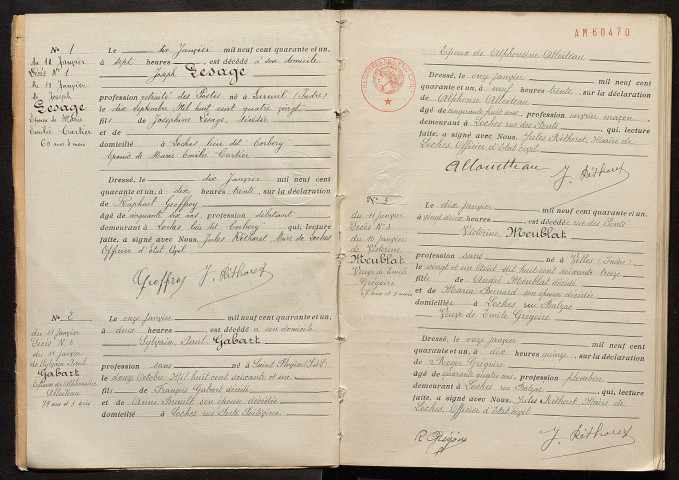 N° 1
du 11 Janvier
Décès N° 1
du 10 Janvier
de Joseph
Lesage
Epoux de Marie
Emilie Cartier
60 ans 4 mois
Le dix Janvier mil neuf cent quarante et un,
à sept heures, est décédé à son domicile
Joseph Lesage
profession retraité des Postes né à Lureuil (Indre)
le dix Septembre Mil huit cent quatre vingt
fils de Josephine Lesage, décédée
et de
domicilié à Loches lieu dit Corbery
Epoux de Marie Emilie Cartier
Dressé, le onze Janvier mil neuf cent
quarante et un, à dix heures trente, sur la déclaration
de Raphaël Geoffroy
âgé de cinquante six ans, profession débitant
demeurant à Loches lieu dit Corbery qui, lecture
faite, a signé avec Nous, Jules Réthoret Maire de Loches
Officier d'Etat Civil
Geoffroy J. Réthoret
N° 2
du 11 janvier
Décès N° 2
du 11 janvier
de Sylvain Paul
Gabart
Epoux de Alphonsine
Alleiteau
79 ans et 3 mois
Le onze Janvier mil neuf cent quarante et un,
à deux heures est décédé à son domicile
Sylvain Paul Gabart
profession sans né à Saint Flovier (I.&L.)
le deux Octobre Mil huit cent soixante et un
fils de François Gabart décédé
et de Anne Brault son épouse décédée
domicilié à Loches rue Porte Poitevine
AM60470
Epoux de Alphonsine Alleiteau
Dressé, le onze janvier mil neuf cent
quarante et un, à neuf heures trente, sur la déclaration
de Alphonse Alleiteau
âgé de cinquante huit ans, profession ouvrier maçon
demeurant à Loches rue des Ponts qui, lecture
faite, a signé avec Nous, Jules Réthoret, Maire de
Loches, Officier d'Etat civil
J. Réthoret
N° 3
du 11 janvier
Décès N° 3
du 10 janvier
de Victorine
Meublat
Veuve de Emile
Grégoire
67 ans et 5 mois
Le dix janvier mil neuf cent quarante et un,
à vingt deux heures est décédée rue des Ponts
Victorine Meublat
profession sans né à Villes (Indre)
le vingt et un Août Mil huit cent soixante treize
fille de André Meublat décédé
et de Maria Bernard son épouse décédée
domiciliée à Loches rue Balzac
Veuve de Emile Grégoire
Dressé, le onze janvier mil neuf cent
quarante et un, à dix heures quinze, sur la déclaration
de Roger Grégoire
âgé de quarante quatre ans, profession plombier
demeurant à Loches rue Balzac qui, lecture
faite, a signé avec Nous, Jules Réthoret Maire de
Loches, Officier d'Etat civil
R Grégoire J. Réthoret